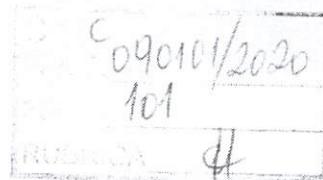 C
090101/2020
101
RUBRICA